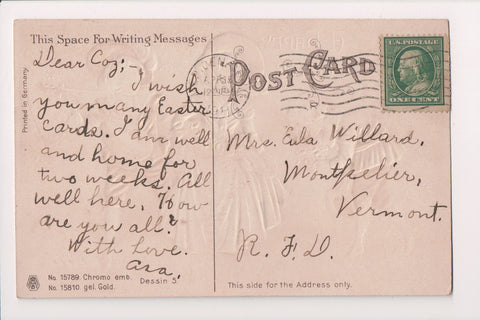 This Space For Writing Messages
Dear Coz;-
I wish
you many Easter
cards. I am well
and home for
two weeks. All
well here. How
are you all?
With love.
Ara.
Printed in Germany
No. 15789. Chromo emb.
No. 15810. gel. Gold.
Dessin 5.
POST CARD
U.S. POSTAGE
ONE CENT
Mrs. Eula Willard.
Montpelier,
Vermont.
R. F. D.
This side for the Address only.